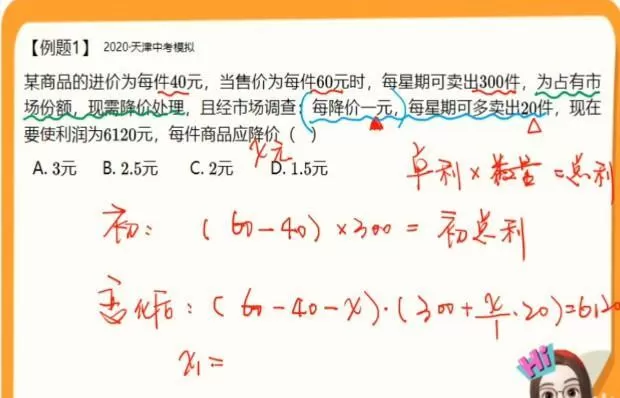 【例题1】 2020·天津中考模拟
某商品的进价为每件40元，当售价为每件60元时，每星期可卖出300件，为占有市
场份额，现需降价处理，且经市场调查：每降价一元，每星期可多卖出20件，现在
要使利润为6120元，每件商品应降价（ ）
x元
A. 3元 B. 2.5元 C. 2元 D. 1.5元
单利×数量=总利
初：(60-40)×300=初总利
变化后：(60-40-x)·(300+x/1·20)=6120
x₁=
Hi